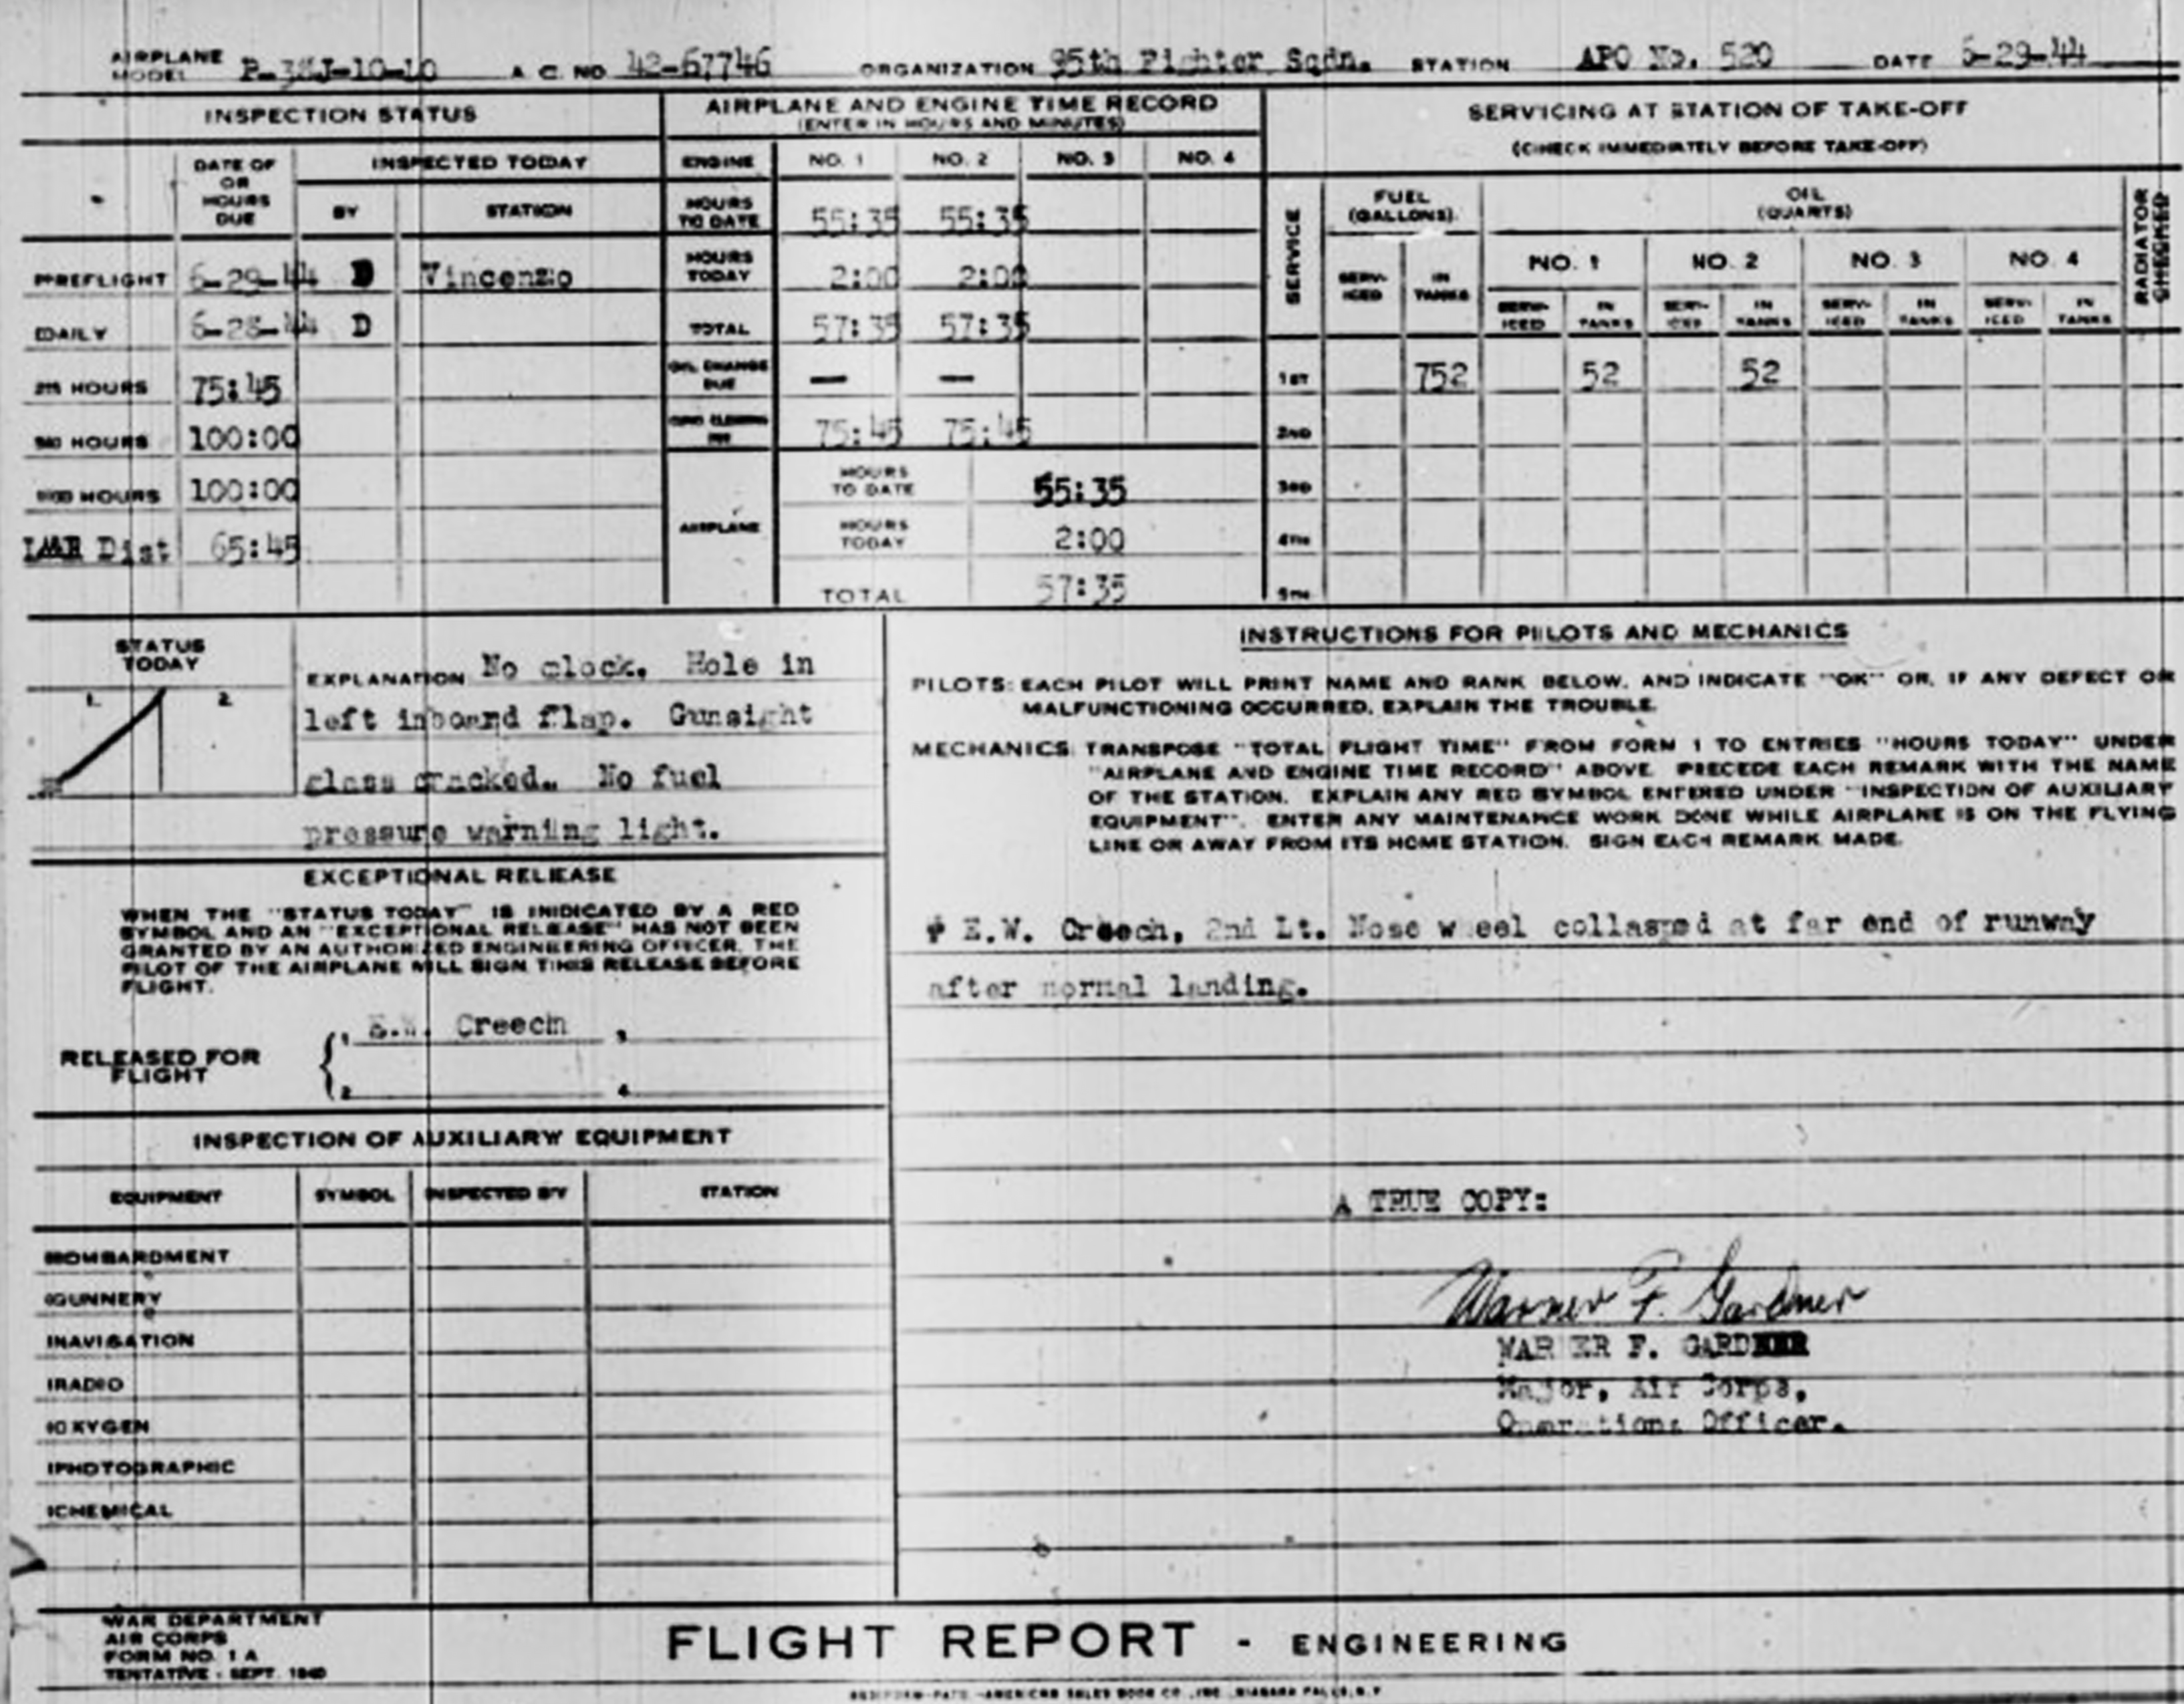 AIRPLANE MODEL P-38J-10-10 A.C. NO 42-67746 ORGANIZATION 95th Fighter Sqdn. STATION APO No. 520 DATE 6-29-44
INSPECTION STATUS
DATE OF OR HOURS DUE
INSPECTED TODAY
BY STATION
PREFLIGHT 6-29-44 D Vincenzo
DAILY 6-28-44 D
25 HOURS 75:45
50 HOURS 100:00
100 HOURS 100:00
Dist 65:45
AIRPLANE AND ENGINE TIME RECORD
(ENTER IN HOURS AND MINUTES)
ENGINE NO. 1 NO. 2 NO. 3 NO. 4
HOURS TO DATE 55:35 55:35
HOURS TODAY 2:00 2:00
TOTAL 57:35 57:35
OIL CHANGE DUE — —
75:45 75:45
AIRPLANE
HOURS TO DATE 55:35
HOURS TODAY 2:00
TOTAL 57:35
SERVICING AT STATION OF TAKE-OFF
(CHECK IMMEDIATELY BEFORE TAKE-OFF)
SERVICE
FUEL (GALLONS)
OIL (QUARTS)
RADIATOR CHECKED
NO. 1 NO. 2 NO. 3 NO. 4
SERV-ICED IN TANKS SERV-ICED IN TANKS SERV-ICED IN TANKS SERV-ICED IN TANKS SERV-ICED IN TANKS
1ST 752 52 52
2ND
3RD
4TH
5TH
STATUS TODAY
1. 2
EXPLANATION No clock. Hole in
left inboard flap. Gunsight
glass cracked. No fuel
pressure warning light.
EXCEPTIONAL RELEASE
WHEN THE "STATUS TODAY" IS INDICATED BY A RED
SYMBOL AND AN "EXCEPTIONAL RELEASE" HAS NOT BEEN
GRANTED BY AN AUTHORIZED ENGINEERING OFFICER, THE
PILOT OF THE AIRPLANE WILL SIGN THIS RELEASE BEFORE
FLIGHT.
RELEASED FOR FLIGHT
1. E.W. Creech 3
2 4
INSPECTION OF AUXILIARY EQUIPMENT
EQUIPMENT SYMBOL INSPECTED BY STATION
BOMBARDMENT
GUNNERY
NAVIGATION
RADIO
OXYGEN
PHOTOGRAPHIC
CHEMICAL
INSTRUCTIONS FOR PILOTS AND MECHANICS
PILOTS: EACH PILOT WILL PRINT NAME AND RANK BELOW, AND INDICATE "OK" OR, IF ANY DEFECT OR
MALFUNCTIONING OCCURRED, EXPLAIN THE TROUBLE.
MECHANICS: TRANSPOSE "TOTAL FLIGHT TIME" FROM FORM 1 TO ENTRIES "HOURS TODAY" UNDER
"AIRPLANE AND ENGINE TIME RECORD" ABOVE. PRECEDE EACH REMARK WITH THE NAME
OF THE STATION. EXPLAIN ANY RED SYMBOL ENTERED UNDER "INSPECTION OF AUXILIARY
EQUIPMENT". ENTER ANY MAINTENANCE WORK DONE WHILE AIRPLANE IS ON THE FLYING
LINE OR AWAY FROM ITS HOME STATION. SIGN EACH REMARK MADE.
E.W. Creech, 2nd Lt. Nose wheel collasped at far end of runway
after normal landing.
A TRUE COPY:
Warner F. Gardner
WARNER F. GARDNER
Major, Air Corps,
Operations Officer.
WAR DEPARTMENT
AIR CORPS
FORM NO. 1 A
TENTATIVE - SEPT. 1940
FLIGHT REPORT - ENGINEERING
AMERICAN SALES BOOK CO., INC., NIAGARA FALLS, N.Y.